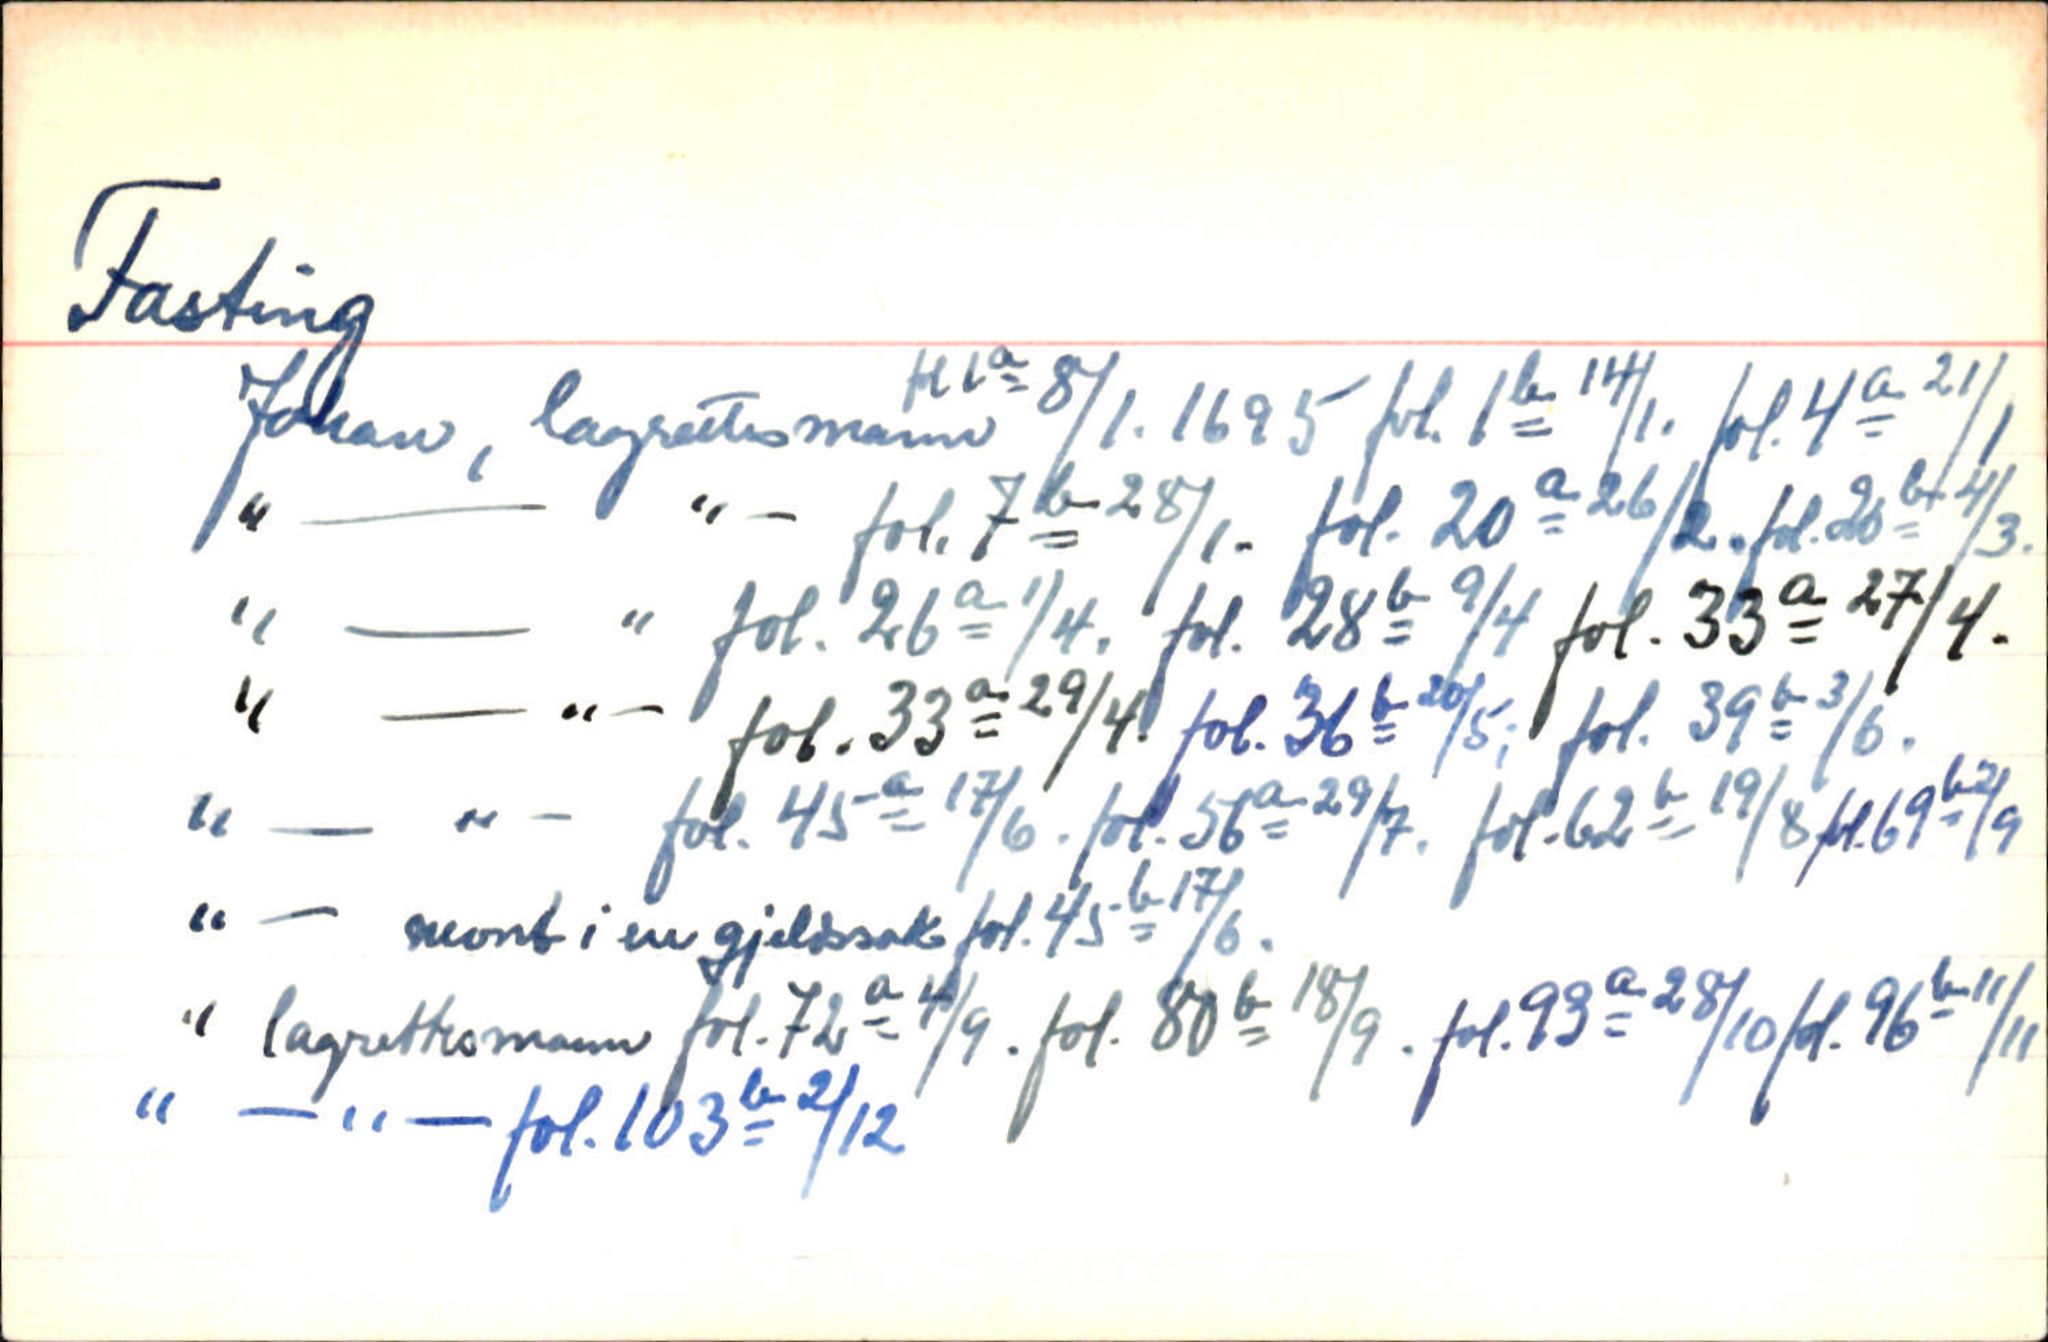 Fasting
Johan, lagrettesmann 8/1. 1695 fol. 1b 14/1. fol. 4a 21/1
" — " — fol. 7b 28/1. fol. 20a 26/2. fol. 20b 4/3.
" — " fol. 26a 1/4. fol. 28b 9/4 fol. 33a 27/4.
" — " — fol. 33a 29/4. fol. 36b 20/5; fol. 39b 3/6.
" — " — fol. 45a 17/6. fol. 56a 29/7. fol. 62b 19/8 fol. 69b 2/9
" — i en gjeldssak fol. 45b 17/6.
" lagrettesmann fol. 72a 4/9. fol. 80b 18/9. fol. 93a 28/10 fol. 96b 11/11
" — " — fol. 103b 2/12